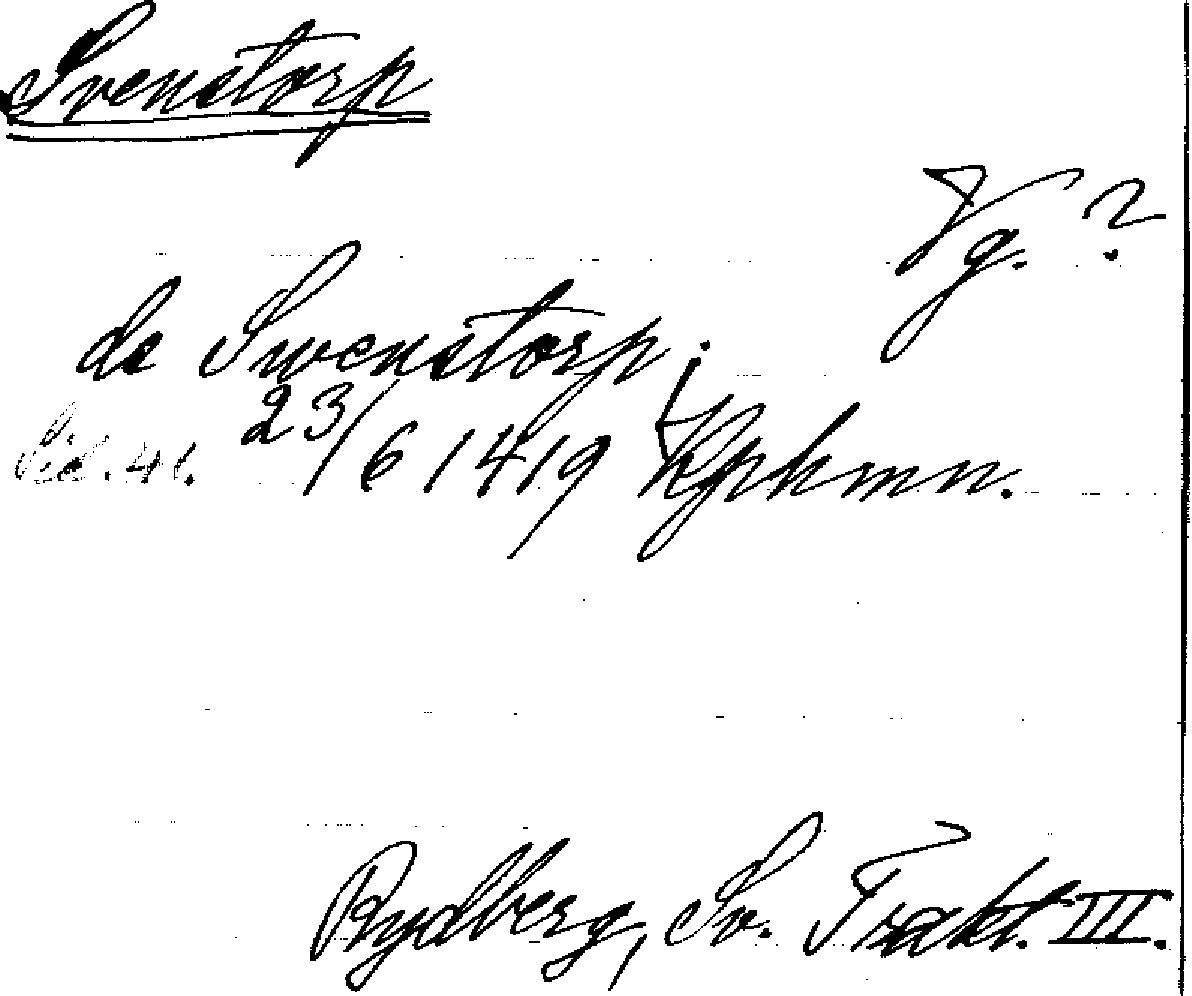 Svenstorp
Vg. ?
de Swenstorp.
Sid. 41. 23/6 1419 Kphmn.
Rydberg, Sv. Trakt. III.